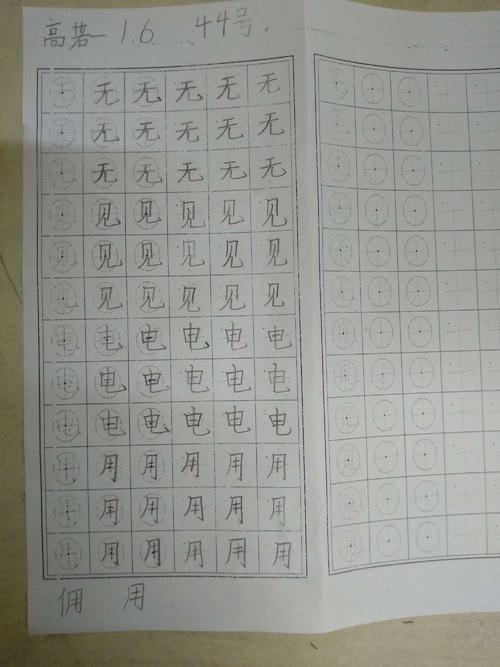 高若一 1.6 44号.
无 无 无 无 无
无 无 无 无 无
无 无 无 无 无
见 见 见 见 见
见 见 见 见 见
见 见 见 见 见
电 电 电 电 电
电 电 电 电 电
电 电 电 电 电
用 用 用 用 用
用 用 用 用 用
用 用 用 用 用
佣 用